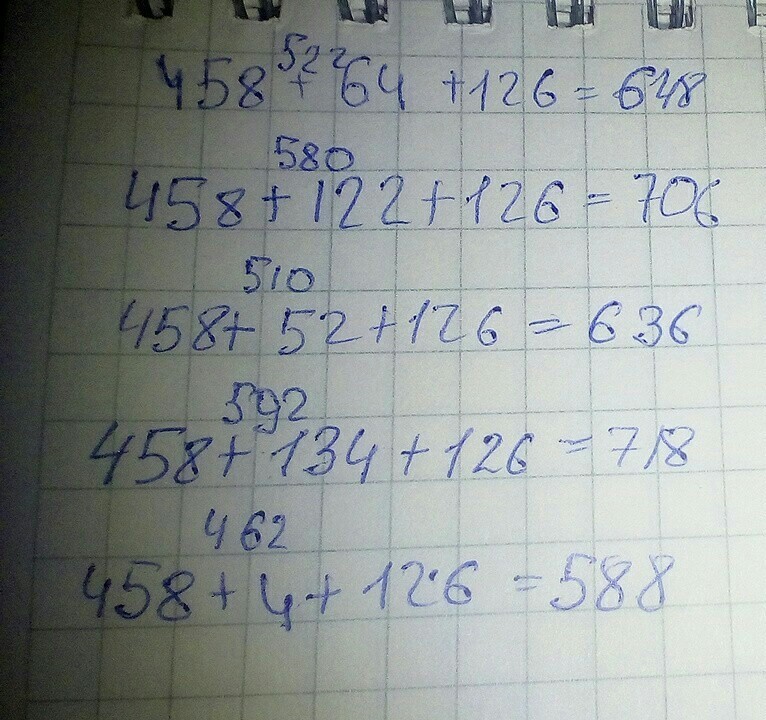 522
458 + 64 + 126 = 648
580
458 + 122 + 126 = 706
510
458 + 52 + 126 = 636
592
458 + 134 + 126 = 718
462
458 + 4 + 126 = 588